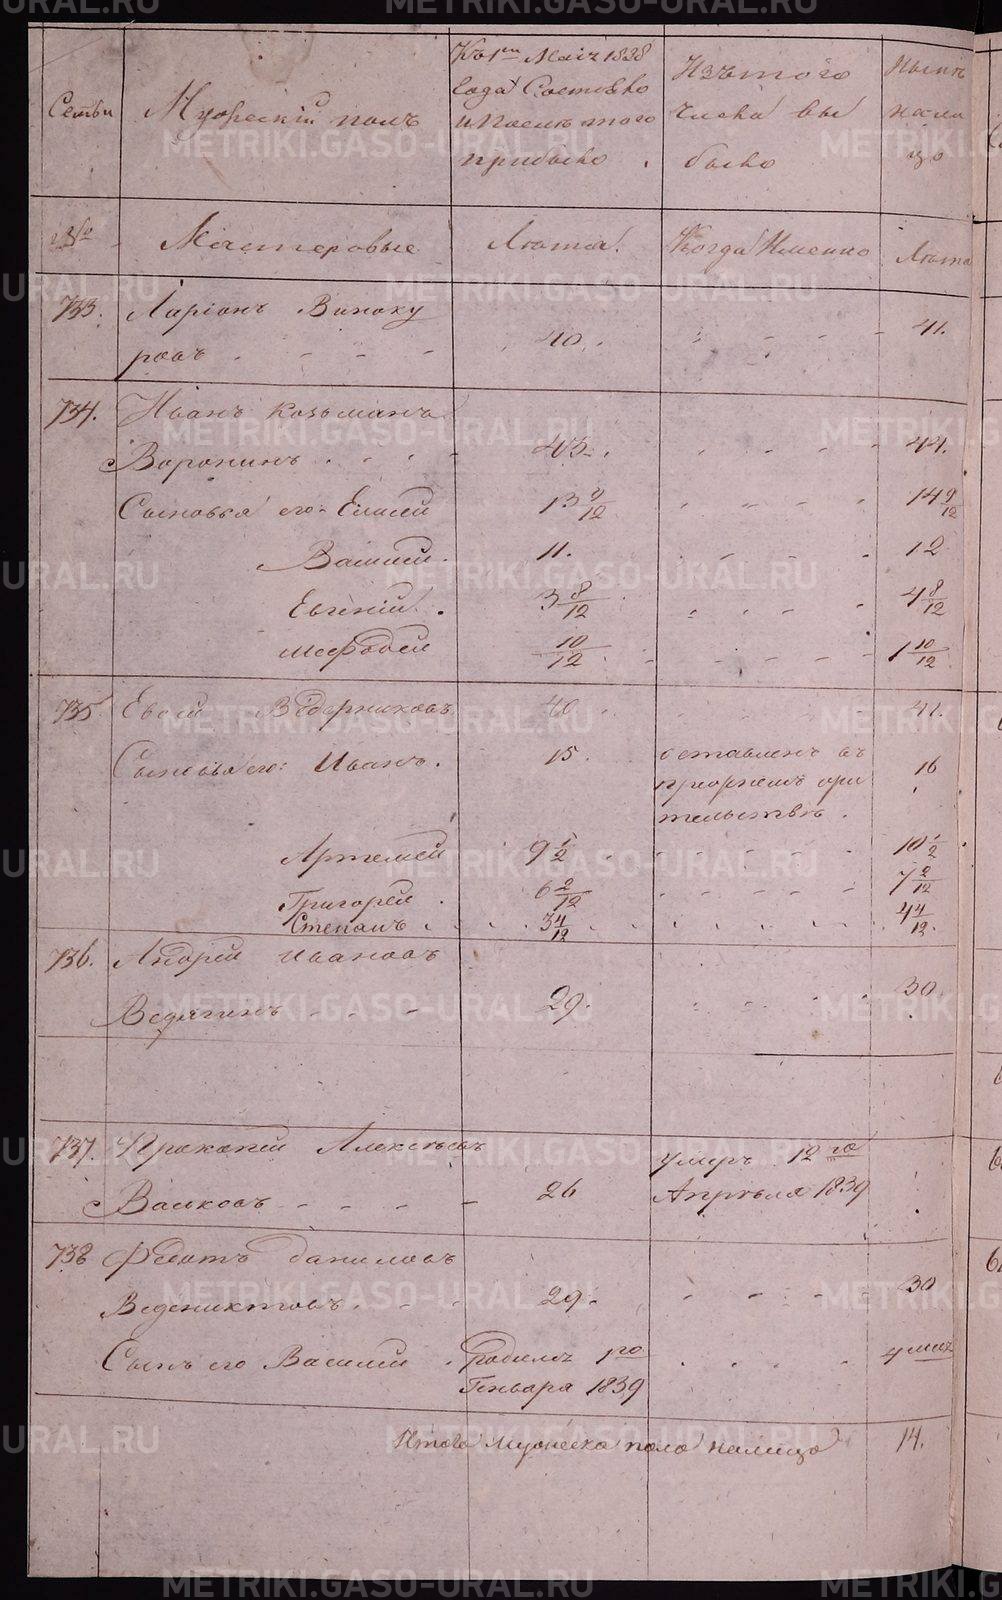 Семьи
Мужеский полъ
Къ 1му Маія 1838
года Состояло
и послѣ того
прибыло
Изъ того
числа вы
было
Нынѣ
нали
цо
№
Мастеровые
Лѣта
Когда Именно
Лѣта
733. Ларіонъ Виноку
ровъ 40. 41.
734. Иванъ Козьминъ
Воронинъ 43. 44.
Сыновья его: Елисей 13 9/12 14 9/12
Василей 11. 12
Евгеній 3 8/12 4 8/12
Мефодей 10/12 1 10/12
735 Евсей Ведерниковъ 40 41.
Сыновья его: Иванъ. 15. оставленъ въ 16
тельствѣ.
Артемей 9 1/2 10 1/2
Григорей 6 2/12 7 2/12
Степанъ 3 4/12 4 4/12
736. Андрей Ивановъ
29. 30.
737 Прокопей Алексѣевъ умеръ 12го
Васковъ 26 Апрѣля 1839
738 Федотъ Даниловъ
Веденихтовъ 29. 30
Сынъ его Василій родился 1го 4 мѣс
Генваря 1839
Итого Мужеска пола налицо 14.
METRIKI.GASO-URAL.RU